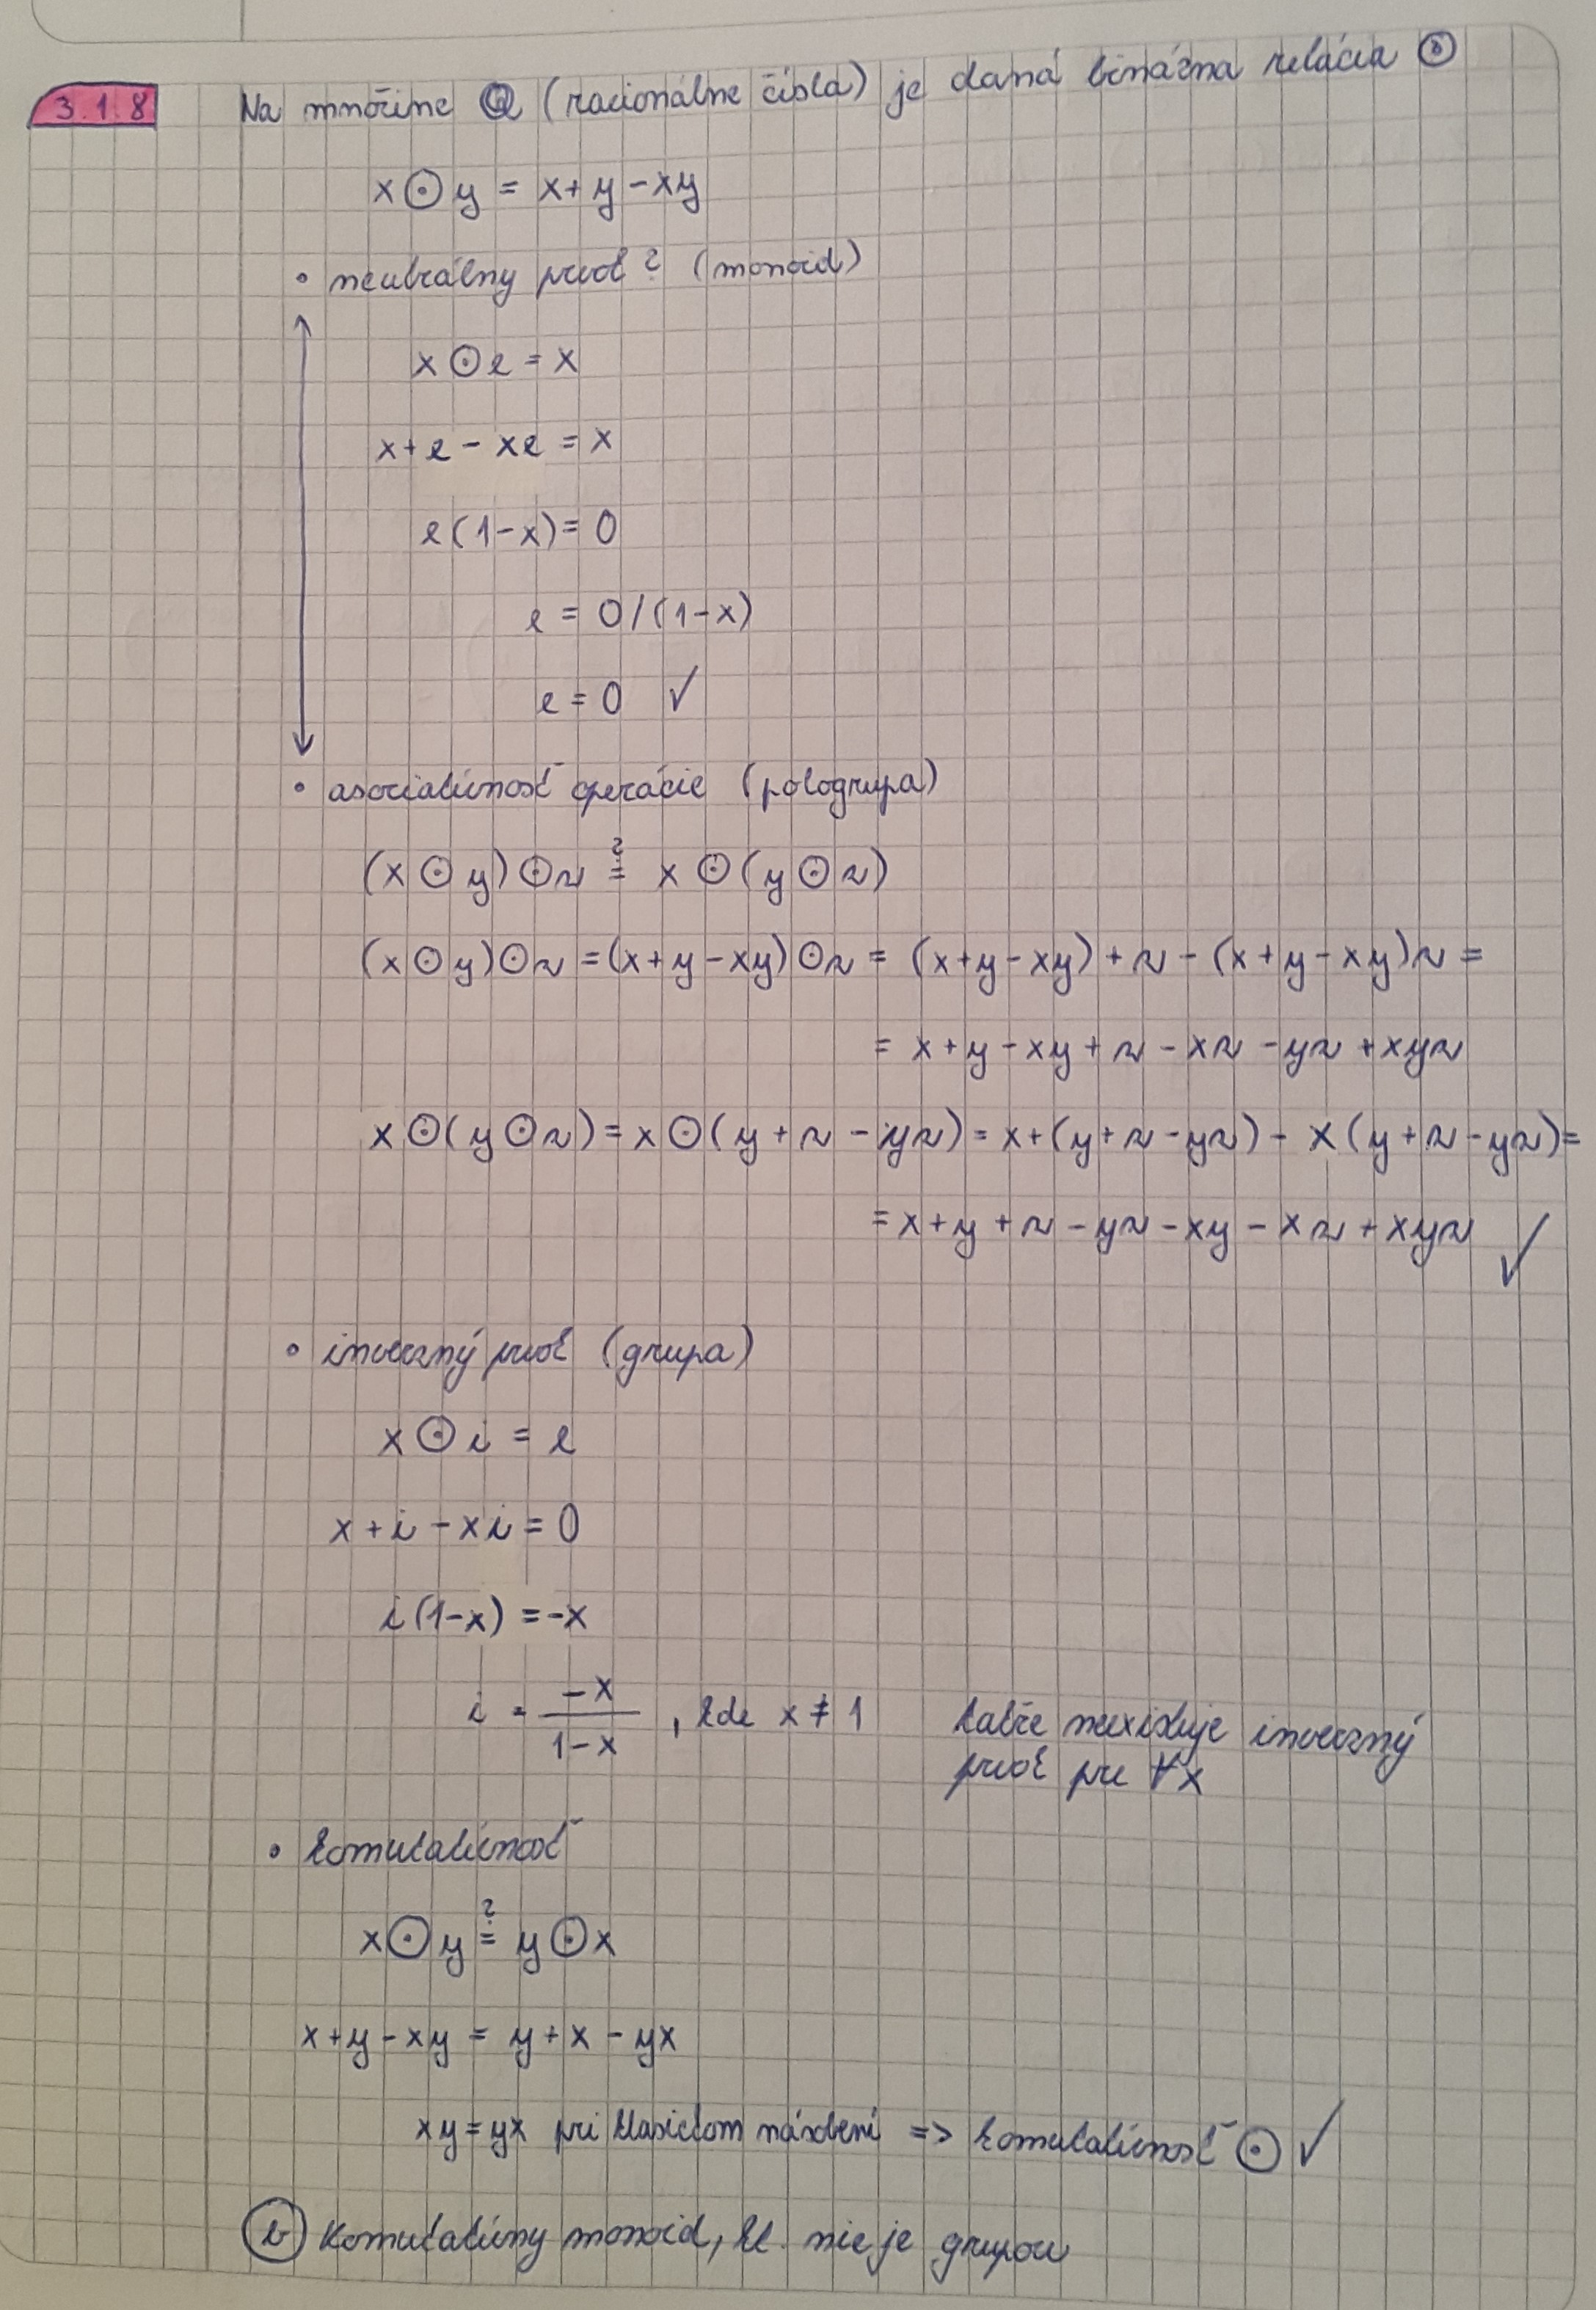 3.1.8 Na množine ℚ (racionálne čísla) je daná binárna relácia ⊙
x ⊙ y = x + y - xy
• neutrálny prvok? (monoid)
x ⊙ e = x
x + e - xe = x
e(1-x) = 0
e = 0/(1-x)
e = 0 ✓
• asociatívnosť operácie (pologrupa)
(x ⊙ y) ⊙ z ≟ x ⊙ (y ⊙ z)
(x ⊙ y) ⊙ z = (x+y-xy) ⊙ z = (x+y-xy) + z - (x+y-xy)z =
= x + y - xy + z - xz - yz + xyz
x ⊙ (y ⊙ z) = x ⊙ (y + z - yz) = x + (y+z-yz) - x(y+z-yz) =
= x + y + z - yz - xy - xz + xyz ✓
• inverzný prvok (grupa)
x ⊙ i = e
x + i - xi = 0
i(1-x) = -x
i = -x / 1-x , kde x ≠ 1 takže neexistuje inverzný
prvok pre ∀x
• komutatívnosť
x ⊙ y ≟ y ⊙ x
x + y - xy = y + x - yx
xy = yx pri klasickom násobení => komutatívnosť ⊙ ✓
b Komutatívny monoid, kt. nie je grupou